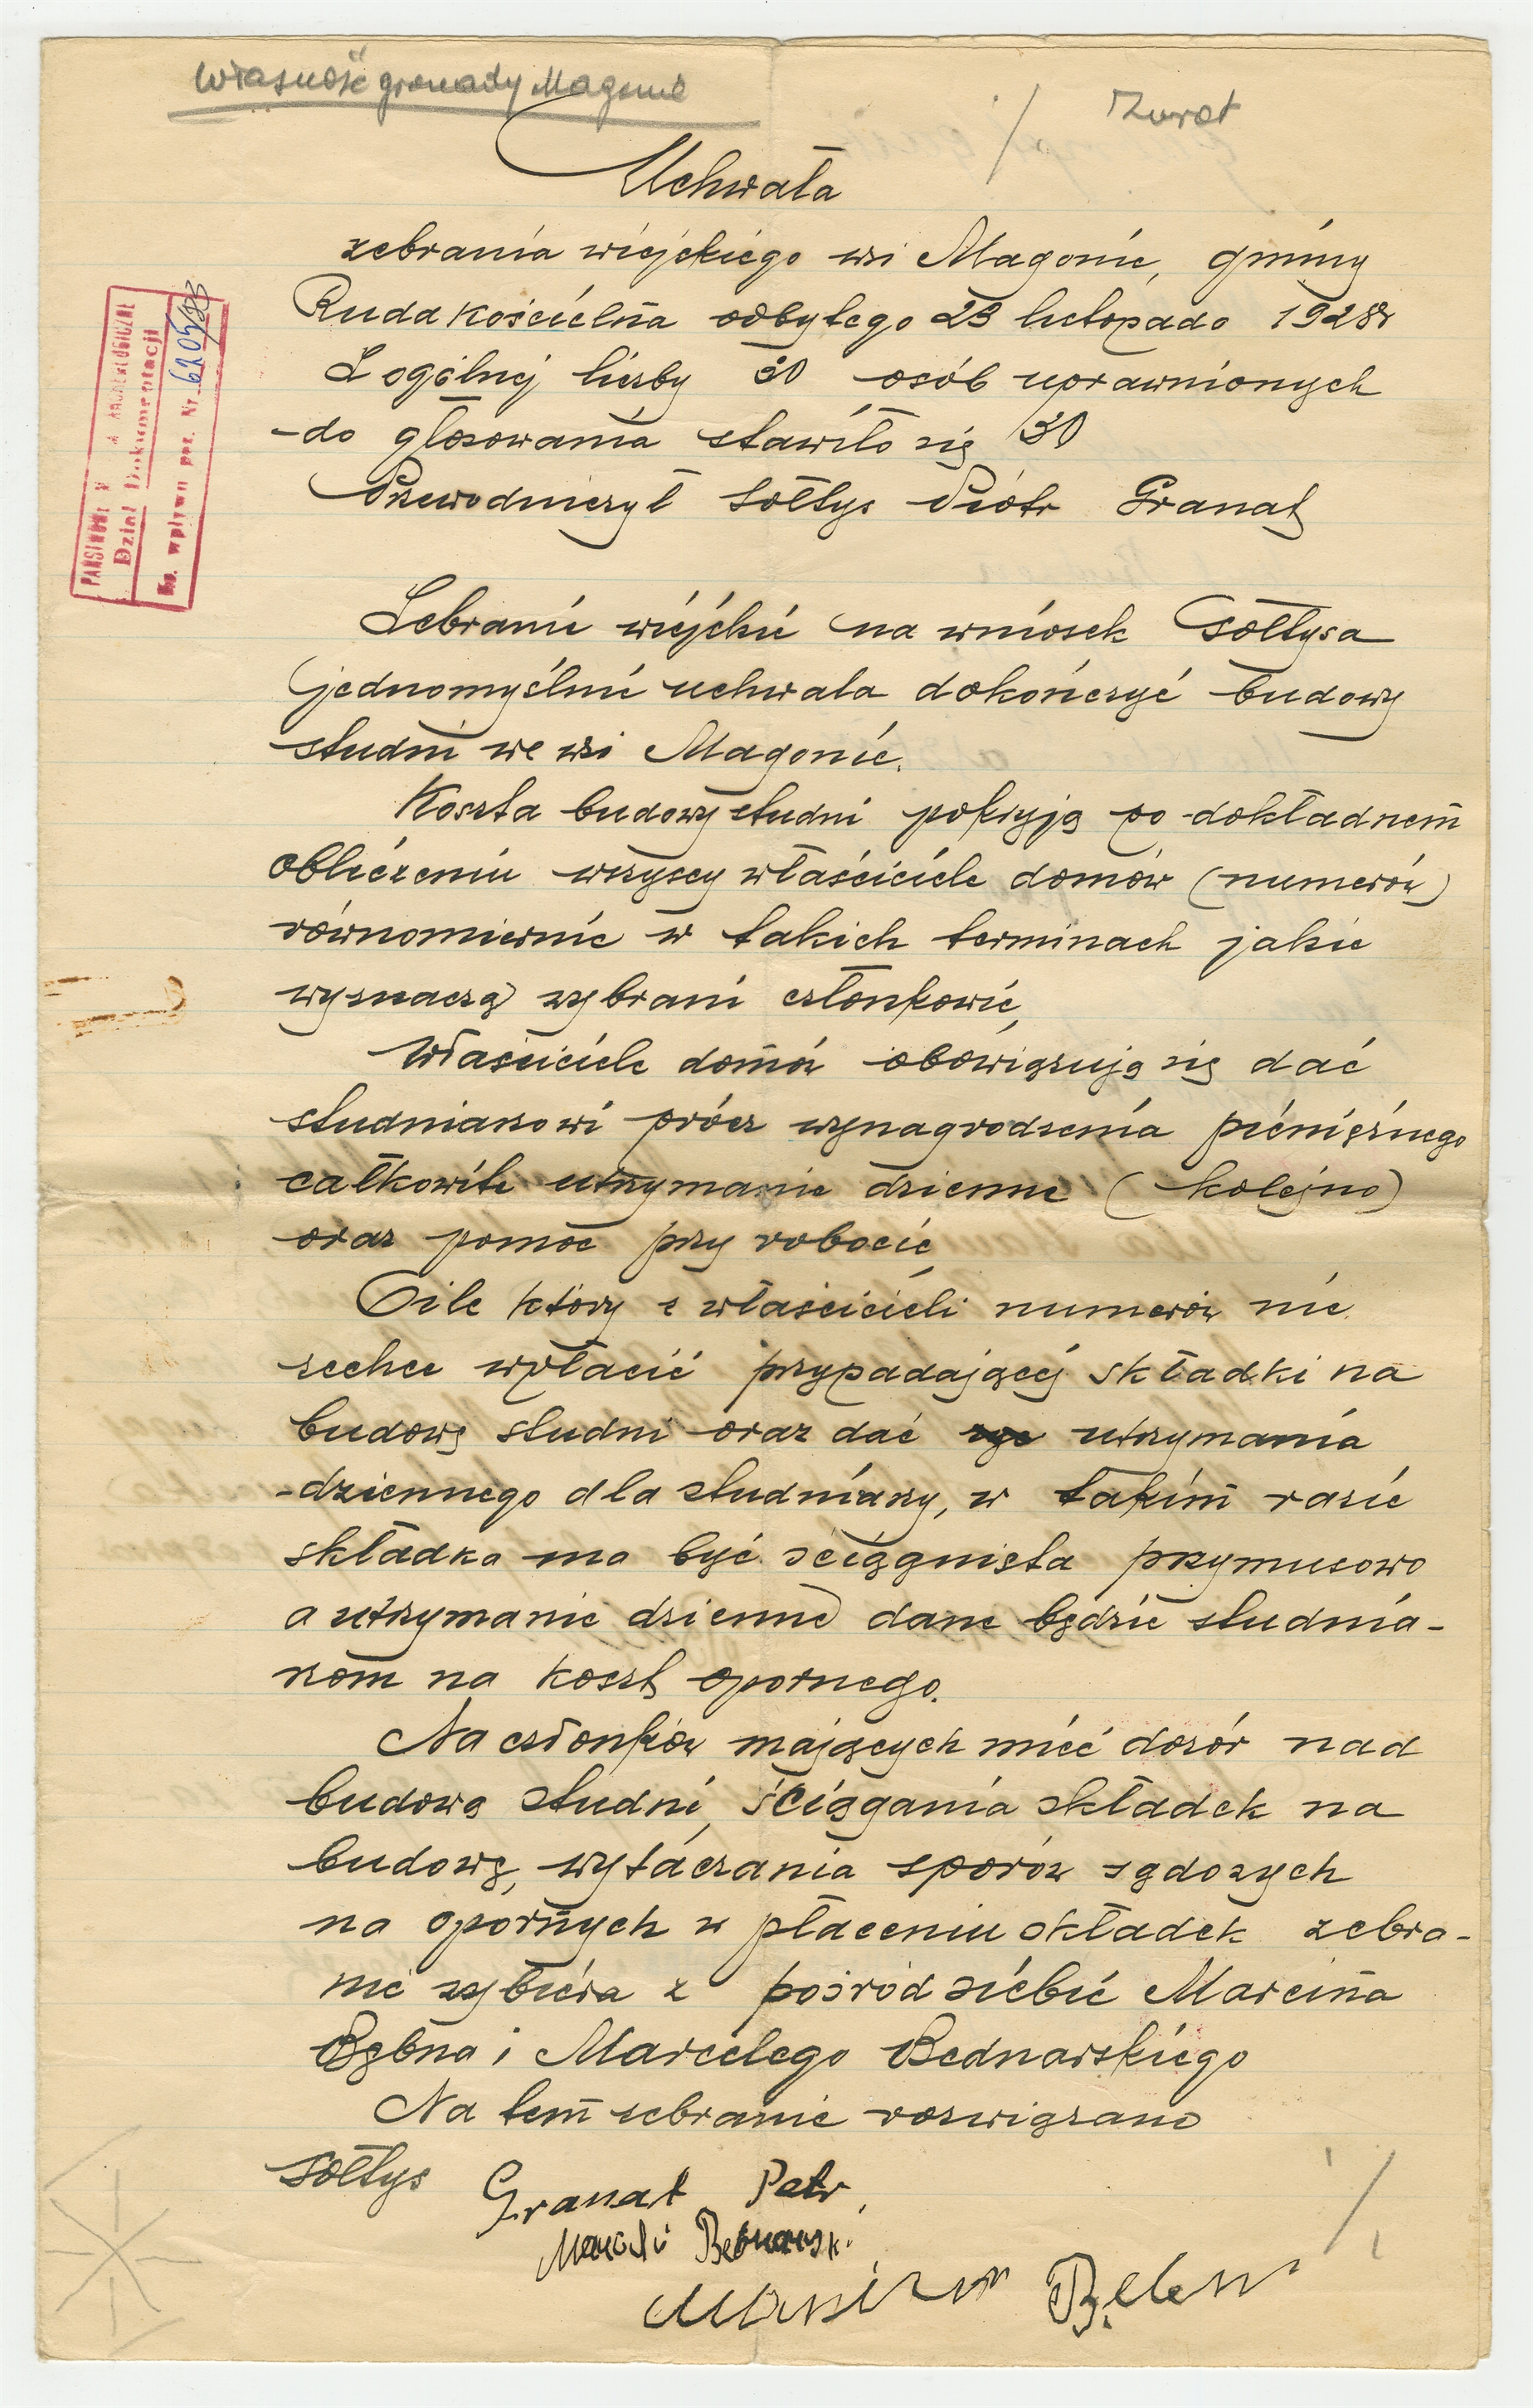 Własność gromady Magonie
Zwrot
Uchwała
zebrania wiejskiego wsi Magonie, gminy
Ruda Kościelna odbytego 23 listopada 1928r
Z ogólnej liczby 30 osób uprawnionych
do głosowania stawiło się 30
Przewodniczył sołtys Piotr Granat
PAŃSTWOWE M ARCHEOLOGICZNE
Dział Dokumentacji
Ks. wpływu poz. Nr.
Zebranie wiejskie na wniosek sołtysa
jednomyślnie uchwala dokończyć budowy
studni we wsi Magonie.
Koszta budowy studni pokryją po dokładnem
obliczeniu wszyscy właściciele domów (numerów)
równomiernie w takich terminach jakie
wyznaczą wybrani członkowie,
Właściciele domów obowiązują się dać
studniarzowi prócz wynagrodzenia pieniężnego
całkowite utrzymanie dzienne (kolejno)
oraz pomoc przy robocie
O ile który z właścicieli numerów nie
zechce wpłacić przypadającej składki na
budowę studni oraz dać utrzymania
dziennego dla studniarzy, w takim razie
składka ma być ściągnięta przymusowo
a utrzymanie dzienne dane będzie studnia-
rzom na koszt opornego.
Na członków mających mieć dozór nad
budową studni, ściągania składek na
budowę, wytaczania sporów sądowych
na opornych w płaceniu składek zebra-
nie wybiera z pośród siebie Marcina
Bębna i Marcelego Bednarskiego
Na tem zebranie rozwiązano
Sołtys Granat Petr,
Bednarski